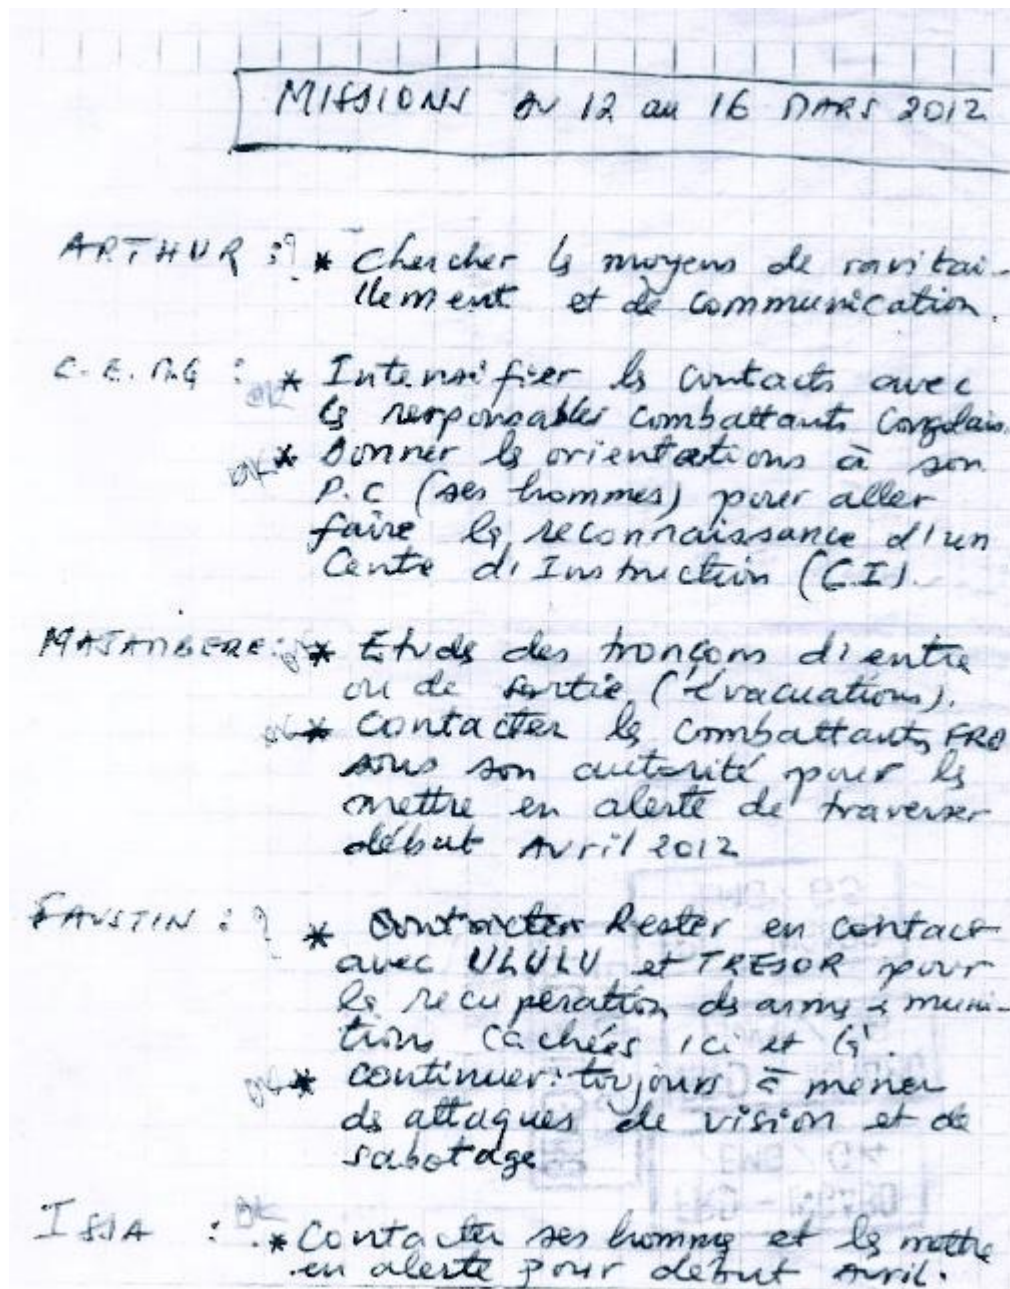 MISSIONS DU 12 au 16 MARS 2012
ARTHUR : ? * Chercher les moyens de ravitai-
llement et de communication.
C.E.M.G : OK * Intensifier les contacts avec
les responsables combattants Congolais.
OK * Donner les orientations à son
P.C (ses hommes) pour aller
faire la reconnaissance d'un
Centre d'Instruction (CI).
MAJAMBERE : OK * Etude des tronçons d'entre
ou de sortie (évacuations).
OK * Contacter les combattants
sous son autorité pour les
mettre en alerte de traverser
début Avril 2012
FAUSTIN : ? * Rester en contact
avec ULULU et TRESOR pour
la recuperation des armes & muni-
tions cachées ici et là.
OK * continuer toujours à mener
des attaques de vision et de
sabotage
ISSA : OK * Contacter ses hommes et les mettre
en alerte pour début Avril.